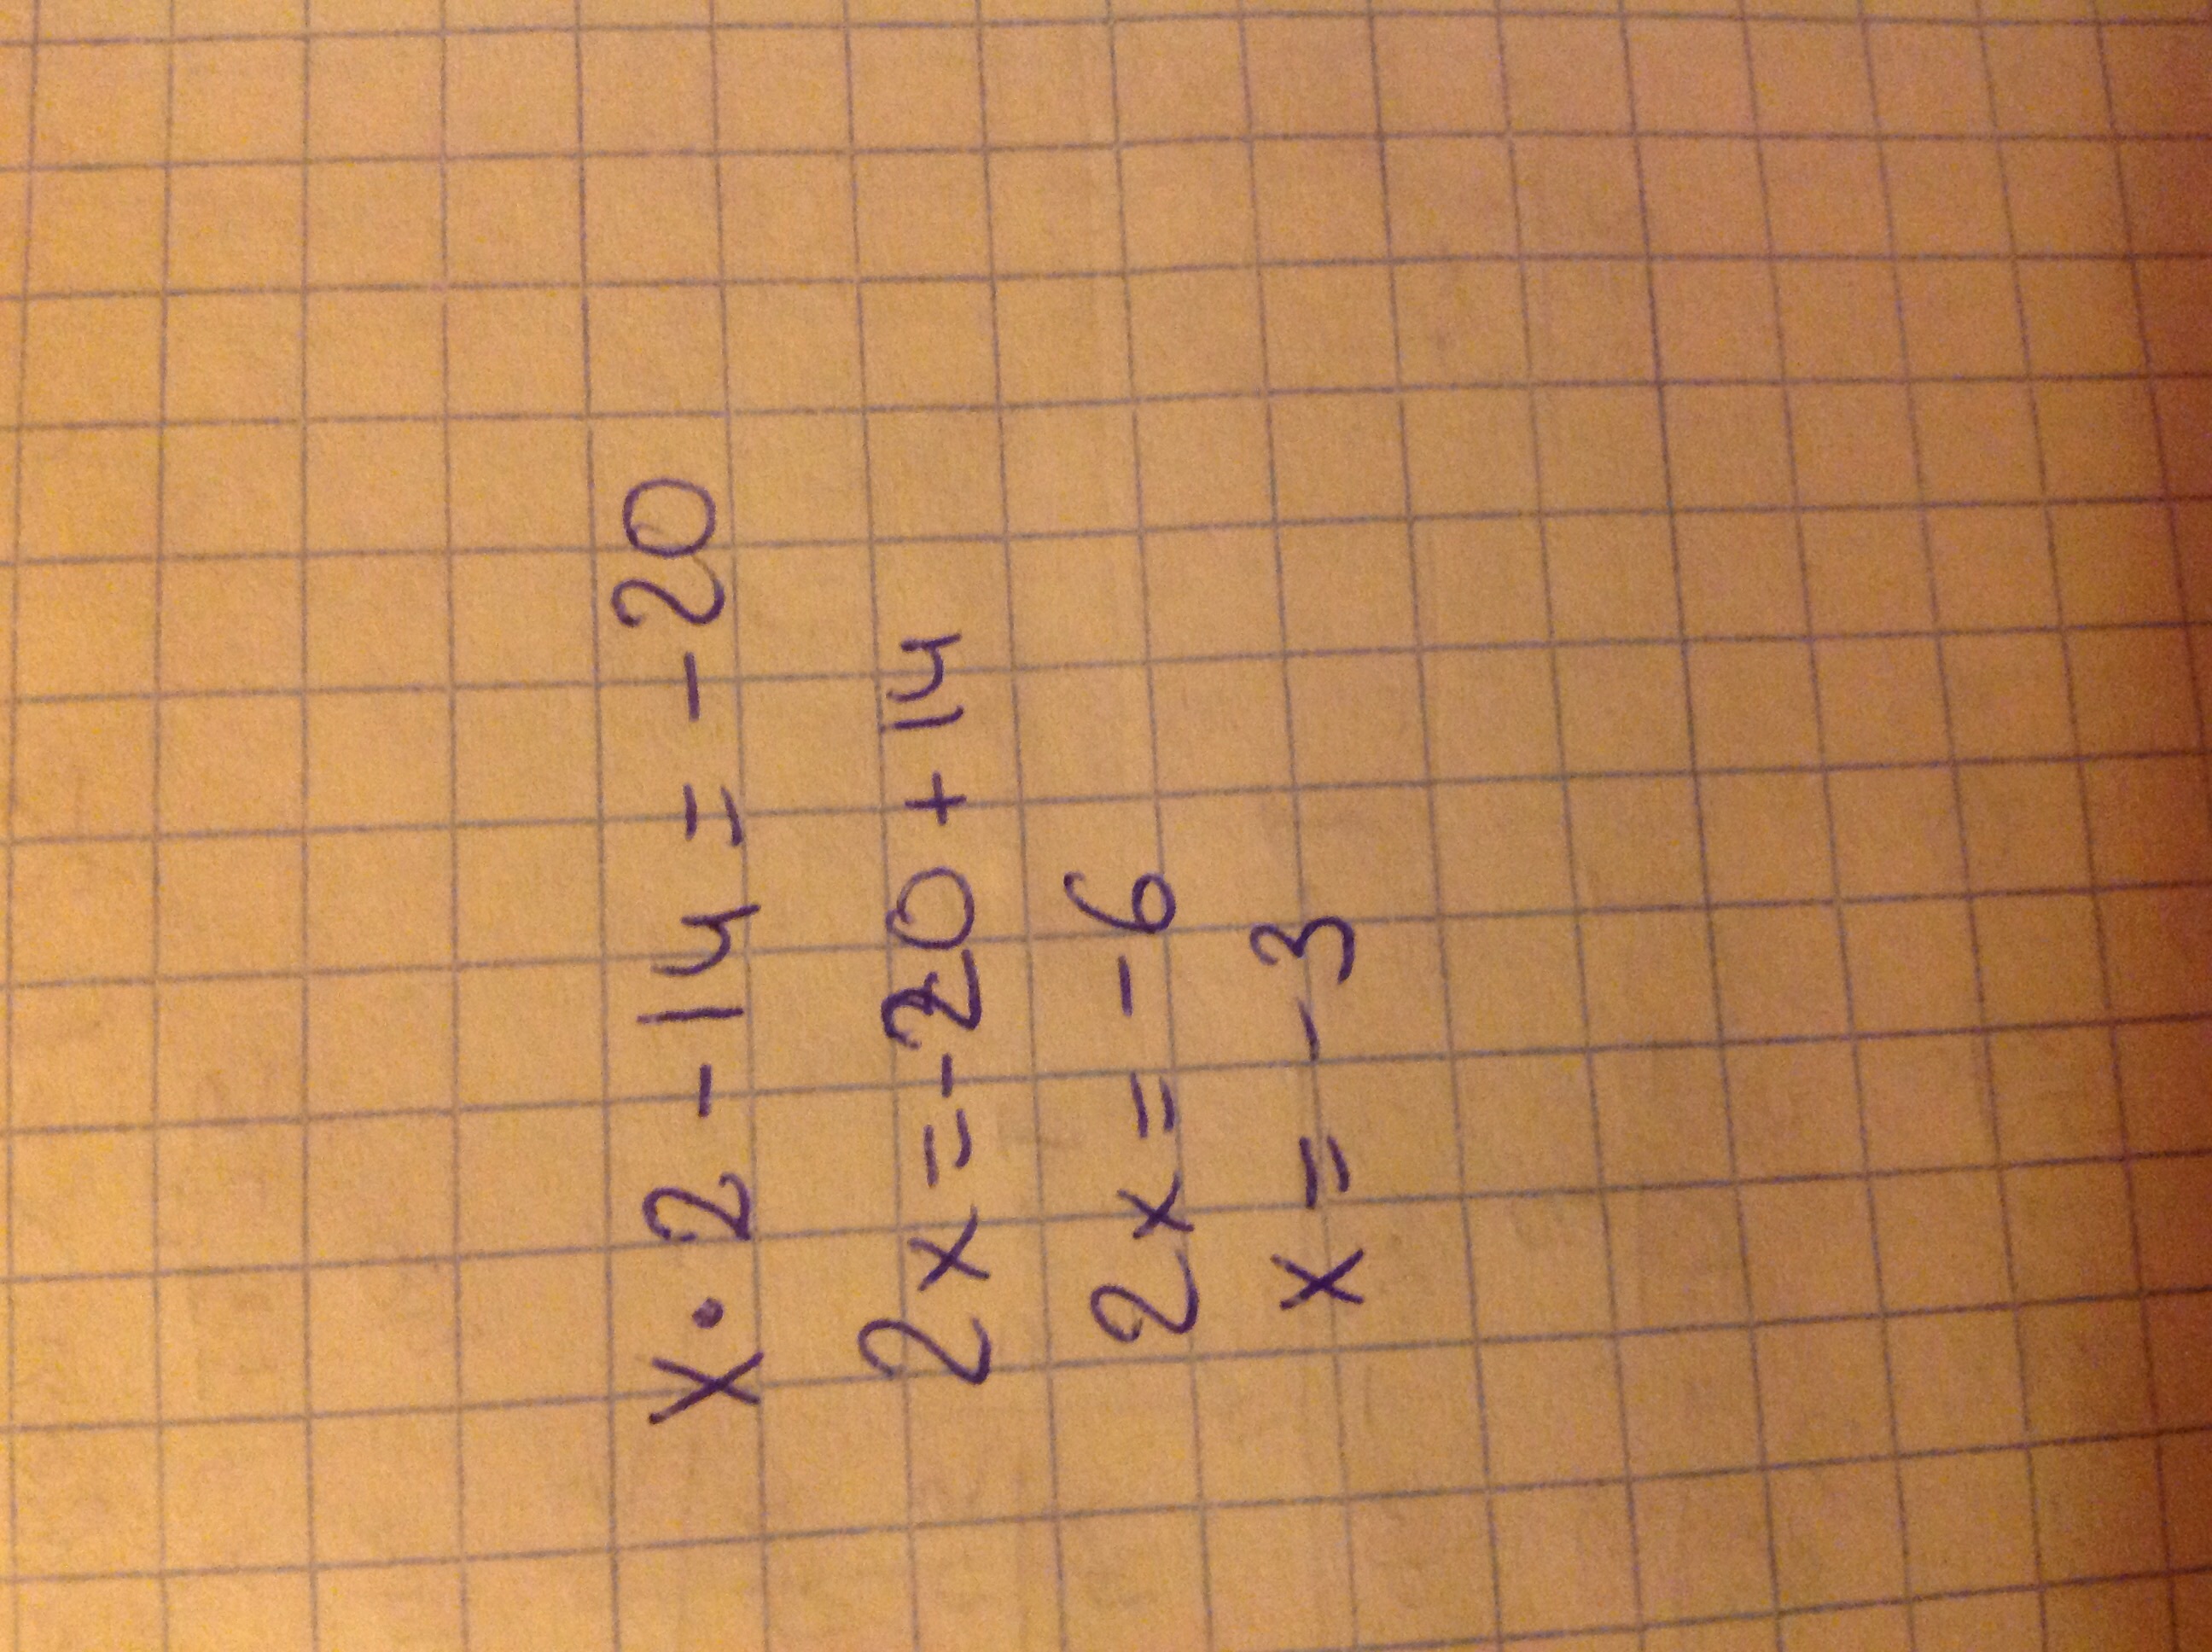 x · 2 - 14 = - 20
2x = - 20 + 14
2x = - 6
x = - 3